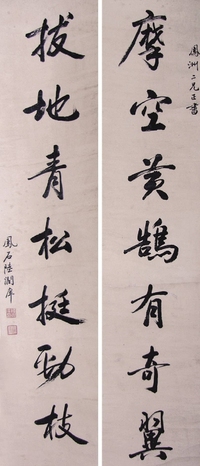 鳳洲二兄正書
摩空黄鵠有奇翼
拔地青松挺勁枝
鳳石陸潤庠